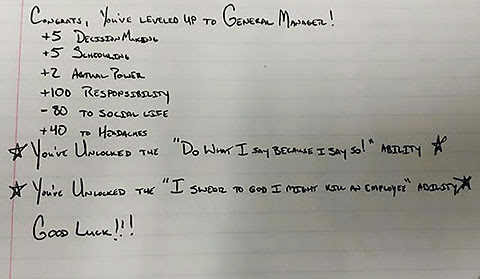 Congrats, You've leveled up to General Manager!
+5 Decision Making
+5 Scheduling
+2 Actual Power
+100 Responsibility
- 80 to social life
+40 to Headaches
☆ You've Unlocked the "Do What I say Because I say so!" ability ☆
☆ You've Unlocked the "I swear to god I might kill an employee" ability ☆
Good Luck!!!